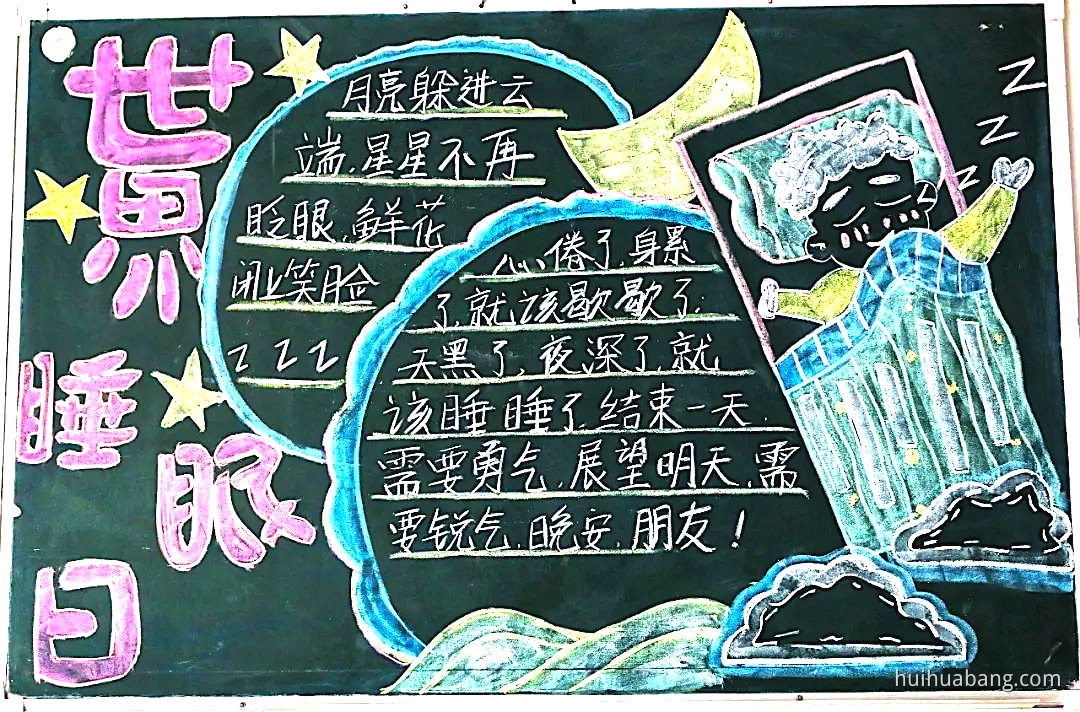 世界
睡眠
日
月亮躲进云
端,星星不再
眨眼,鲜花
闭上笑脸
z z z
心倦了,身累
了,就该歇歇了.
天黑了,夜深了,就
该睡睡了,结束一天.
需要勇气,展望明天,需
要锐气,晚安,朋友!
Z
Z
Z
huihuabang.com